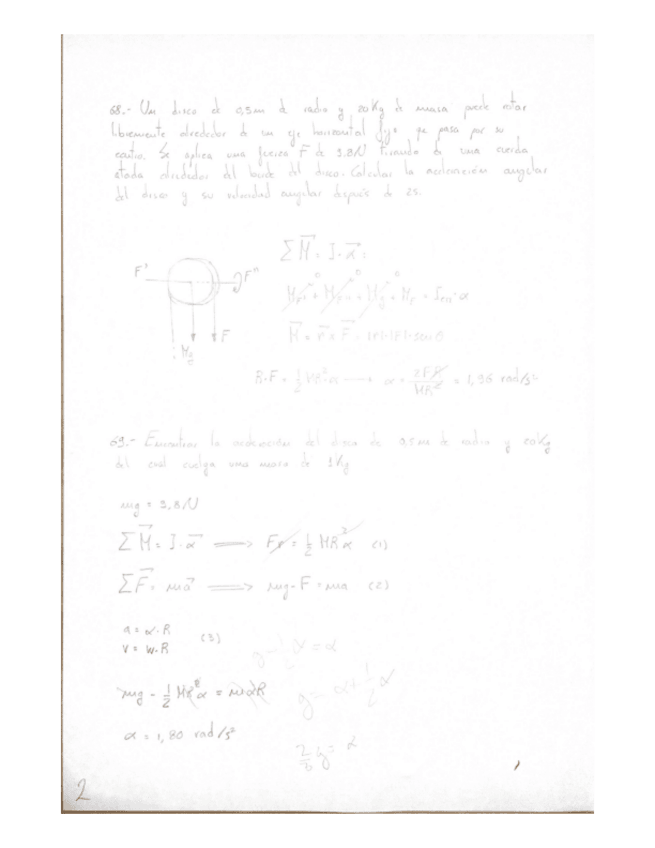 68.- Un disco de 0,5m de radio y 20Kg de masa puede rotar
libremente alrededor de un eje horizontal fijo que pasa por su
centro. Se aplica una fuerza F⃗ de 9.8N tirando de una cuerda
atada alrededor del borde del disco. Calcular la aceleración angular
del disco y su velocidad angular después de 2s.
ΣM⃗ = I·α⃗ =
F' F''
F
Mg
0 0 0
M_F' + M_F'' + M_g + M_F = I_cm·α
M⃗ = r⃗×F⃗ = |r|·|F|·sen θ
R·F = 1/2 MR²·α → α = 2FR/MR² = 1,96 rad/s²
69.- Encontrar la aceleración del disco de 0,5m de radio y 20Kg
del cual cuelga una masa de 1Kg
mg = 9,8N
ΣM⃗ = I·α⃗ ⟹ Fr = 1/2 MR²α (1)
ΣF⃗ = ma⃗ ⟹ mg - F = ma (2)
a = α·R
v = w·R (3)
g = α + 1/2 α
mg - 1/2 MR²α = mαR
α = 1,80 rad/s²
2/3 g = α
2